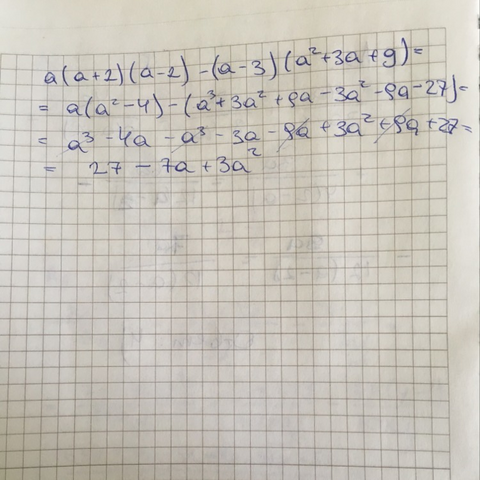 a(a+2)(a-2)-(a-3)(a²+3a+9)=
= a(a²-4)-(a³+3a²+9a-3a²-9a-27)=
= a³-4a-a³-3a-9a+3a²+9a+27=
= 27-7a+3a²